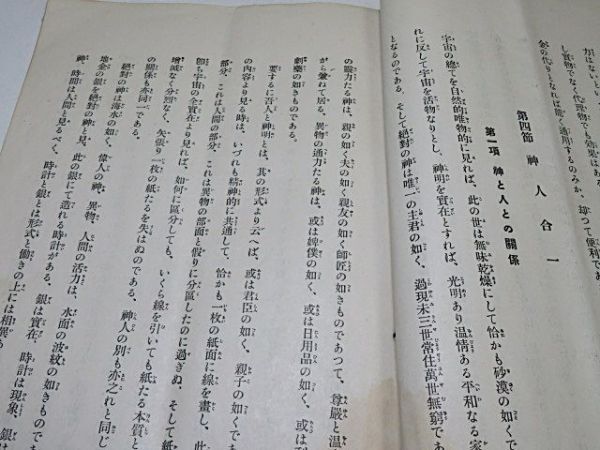 力はないといふ
し實物でなく代理物でも效果はある
金の代りとなれば能く通用するのみか、却つて便利であ
第四節　神人合一
第一項　神と人との關係
宇宙の總てを自然的唯物的に見れば、此の世は無味乾燥にして恰かも砂漠の如くで
れに反して宇宙を活物なりとし、神明を實在とすれば、光明あり溫情ある平和なる家
となるのである。そして絕對の神は唯一の主君の如く、過現未三世常住萬世無窮であ
の職力たる神は、親の如く夫の如く親友の如く師匠の如きものであつて、尊嚴と溫
がら兼ねて居る。異物の通力たる神は、或は婢僕の如く、或は日用品の如く、或は
劇藥の如きものである。
要するに吾人と神明とは、其の形式より云へば、或は君臣の如く、親子の如くであ
の內容より見る時は、いづれも精神的に共通して、恰かも一枚の紙面に線を畫し、此
部分、これは人間の部分、これは異物の部面と假りに分區したのに過ぎぬ、そして紙
卽ち宇宙の全實在より見れば、如何に區分しても、いくら線を引いても紙たる本質と
增減なく分烈なく、矢張り一枚の紙たるを失はぬのである。神人の別も亦之れと同じ
の關係も亦同一である。
絕對の神は海水の如く、偉人の神、異物、人間の活力は、水面の波紋の如きものであ
地金の銀を絕對の神と見、此の銀にて造れる時計がある。銀は實在、時計は現象、銀は
神、時間は人間と見るべく、時計と銀とは形式と働きの上には相催